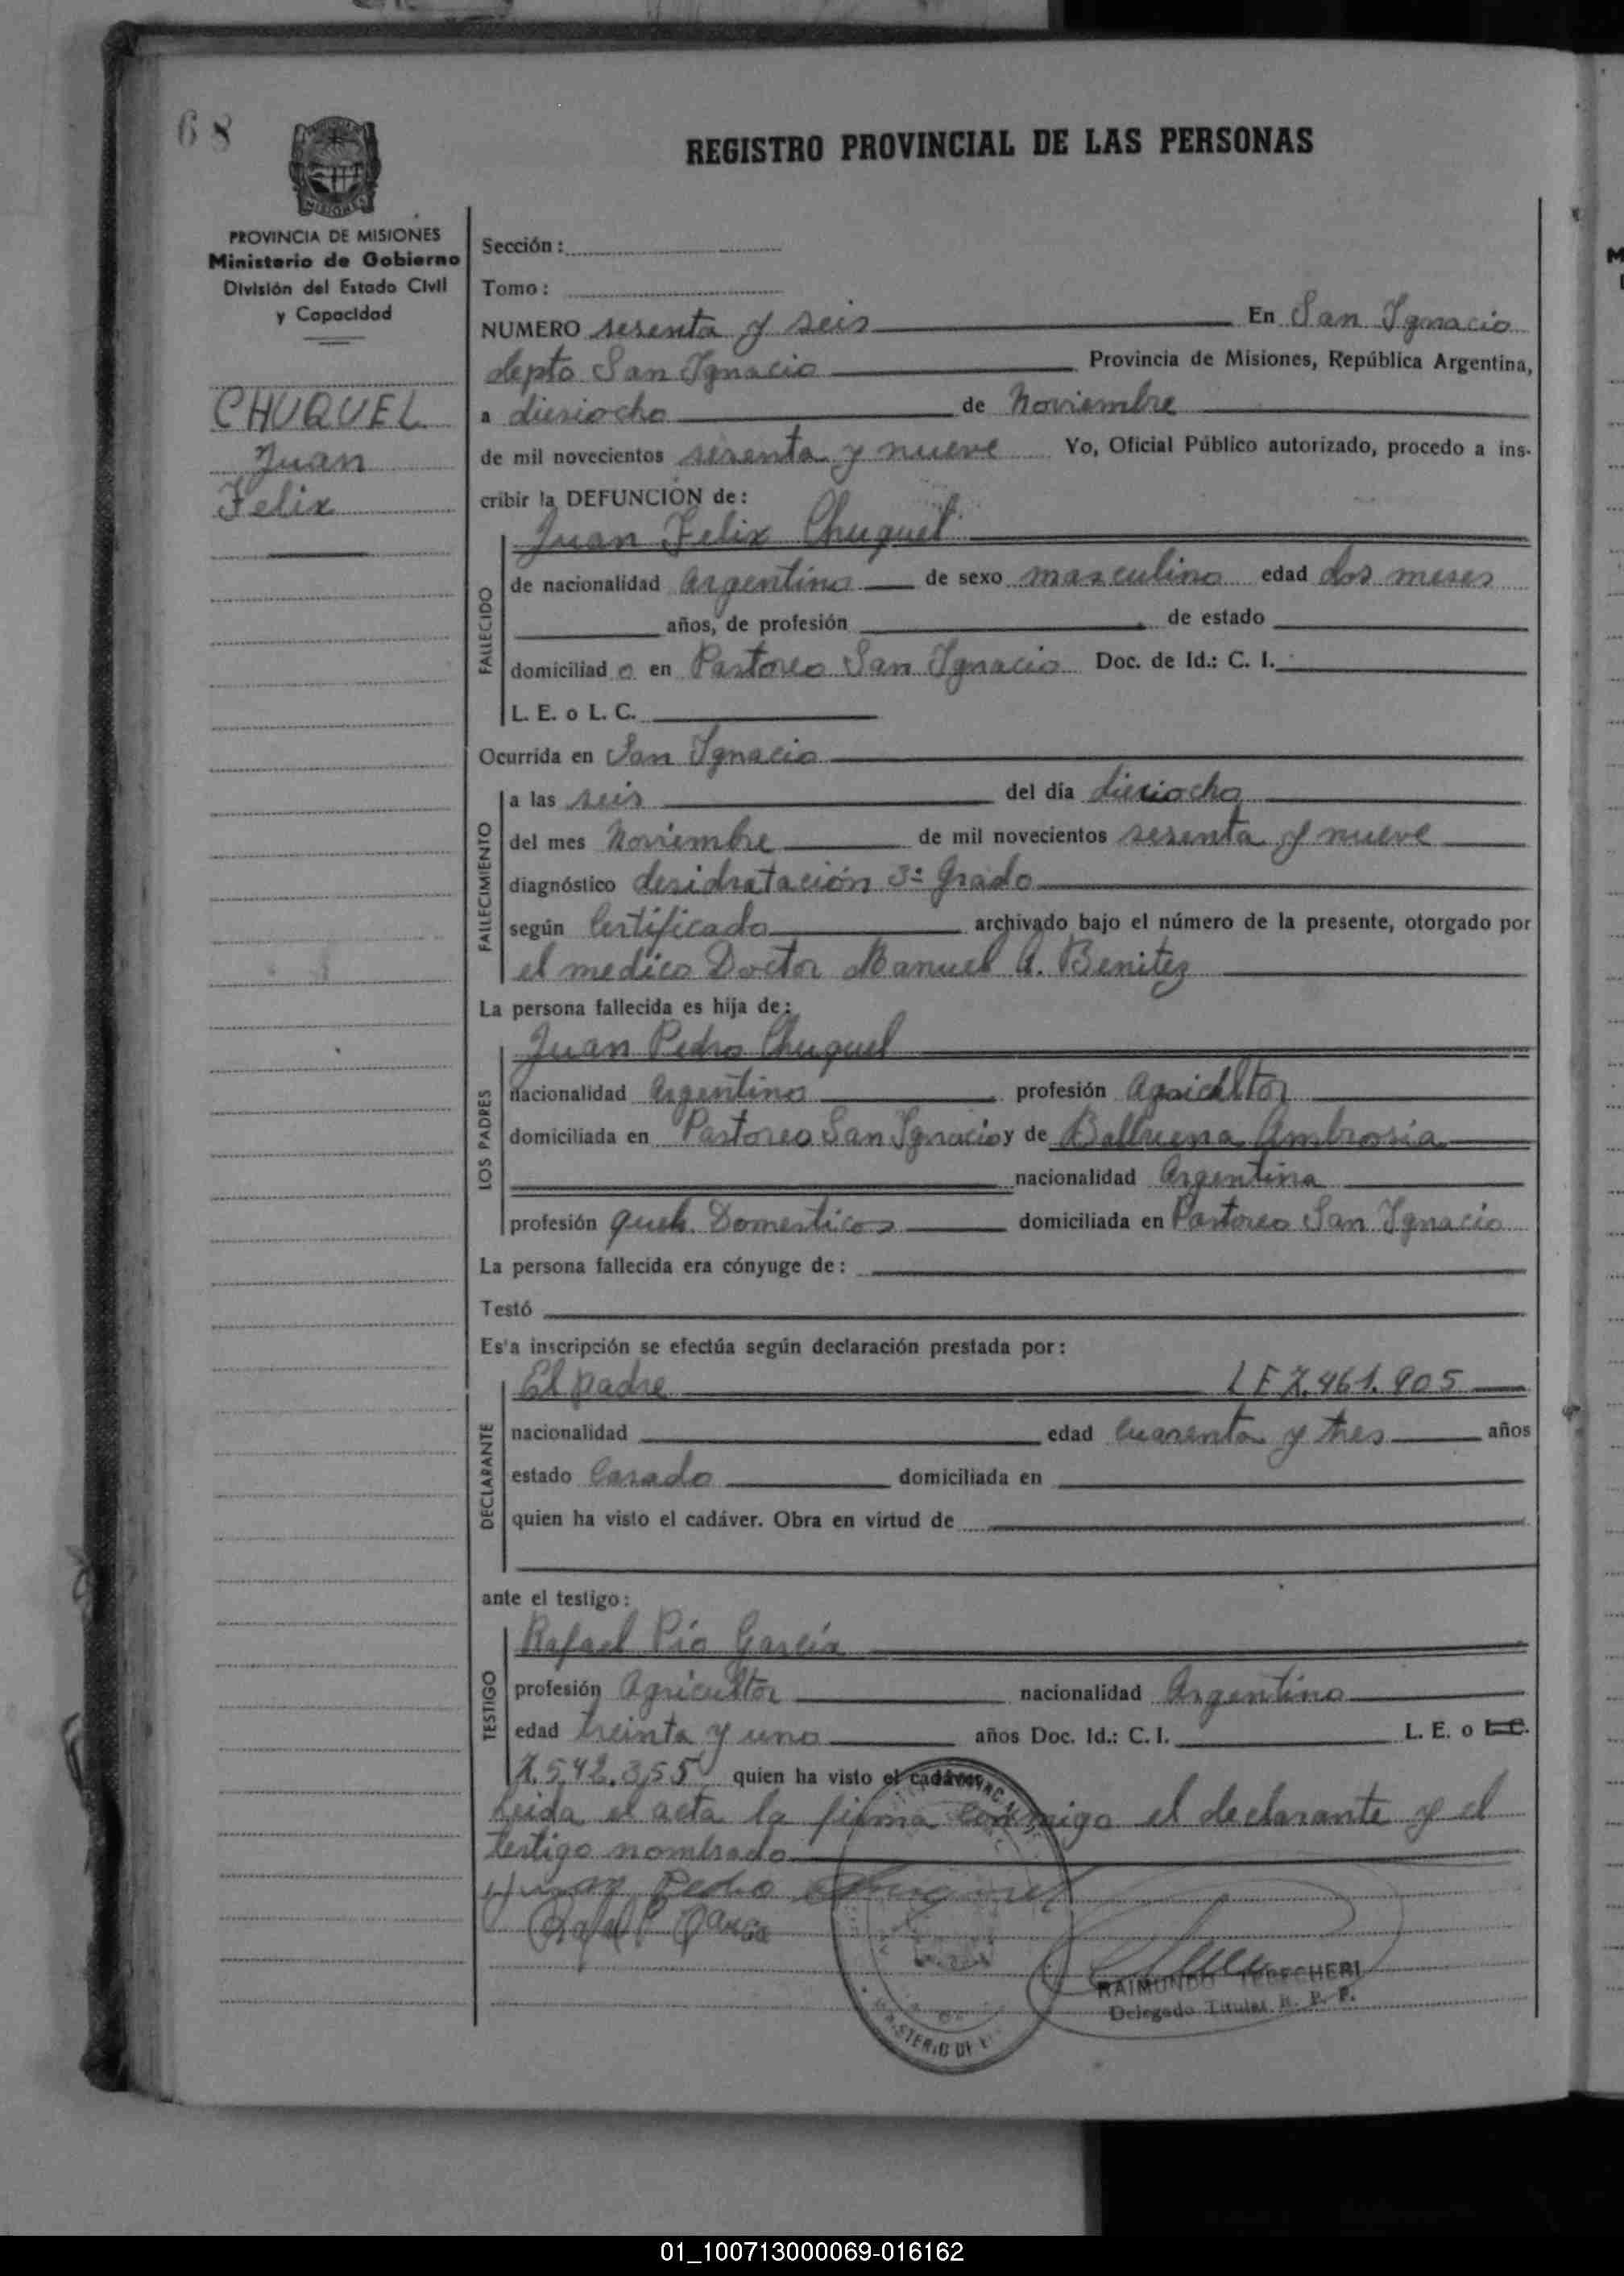 68
REGISTRO PROVINCIAL DE LAS PERSONAS
MISIONES
PROVINCIA DE MISIONES
Ministerio de Gobierno
División del Estado Civil
y Capacidad
CHUQUEL
Juan
Felix
Sección:
Tomo:
NUMERO sesenta y seis En San Ignacio
depto San Ignacio Provincia de Misiones, República Argentina,
a diesiocho de Noviembre
de mil novecientos sesenta y nueve Yo, Oficial Público autorizado, procedo a ins-
cribir la DEFUNCION de:
Juan Felix Chuquel
FALLECIDO
de nacionalidad Argentino de sexo masculino edad dos meses
años, de profesión de estado
domiciliad o en Pastoreo San Ignacio Doc. de Id.: C. I.
L. E. o L. C.
Ocurrida en San Ignacio
FALLECIMIENTO
a las seis del día diesiocho
del mes Noviembre de mil novecientos sesenta y nueve
diagnóstico desidratación 3º grado
según Certificado archivado bajo el número de la presente, otorgado por
el medico Doctor Manuel A. Benitez
La persona fallecida es hija de:
Juan Pedro Chuquel
LOS PADRES
nacionalidad Argentino profesión Agricultor
domiciliada en Pastoreo San Ignacio y de Balbuena Ambrosia
nacionalidad Argentina
profesión queh. Domesticos domiciliada en Pastoreo San Ignacio
La persona fallecida era cónyuge de:
Testó
Es'a inscripción se efectúa según declaración prestada por:
El padre L E 7.461.905
DECLARANTE
nacionalidad edad Cuarenta y tres años
estado Casado domiciliada en
quien ha visto el cadáver. Obra en virtud de
ante el testigo:
Rafael Pío García
TESTIGO
profesión Agricultor nacionalidad Argentino
edad treinta y uno años Doc. Id.: C. I. L. E. o L. C.
7.542.355 quien ha visto el cadáver
Leida el acta la firma conmigo el declarante y el
testigo nombrado
Juan Pedro Chuquel
Rafael P. García
RAIMUNDO
Delegado Titular R. P. P.
01_100713000069-016162